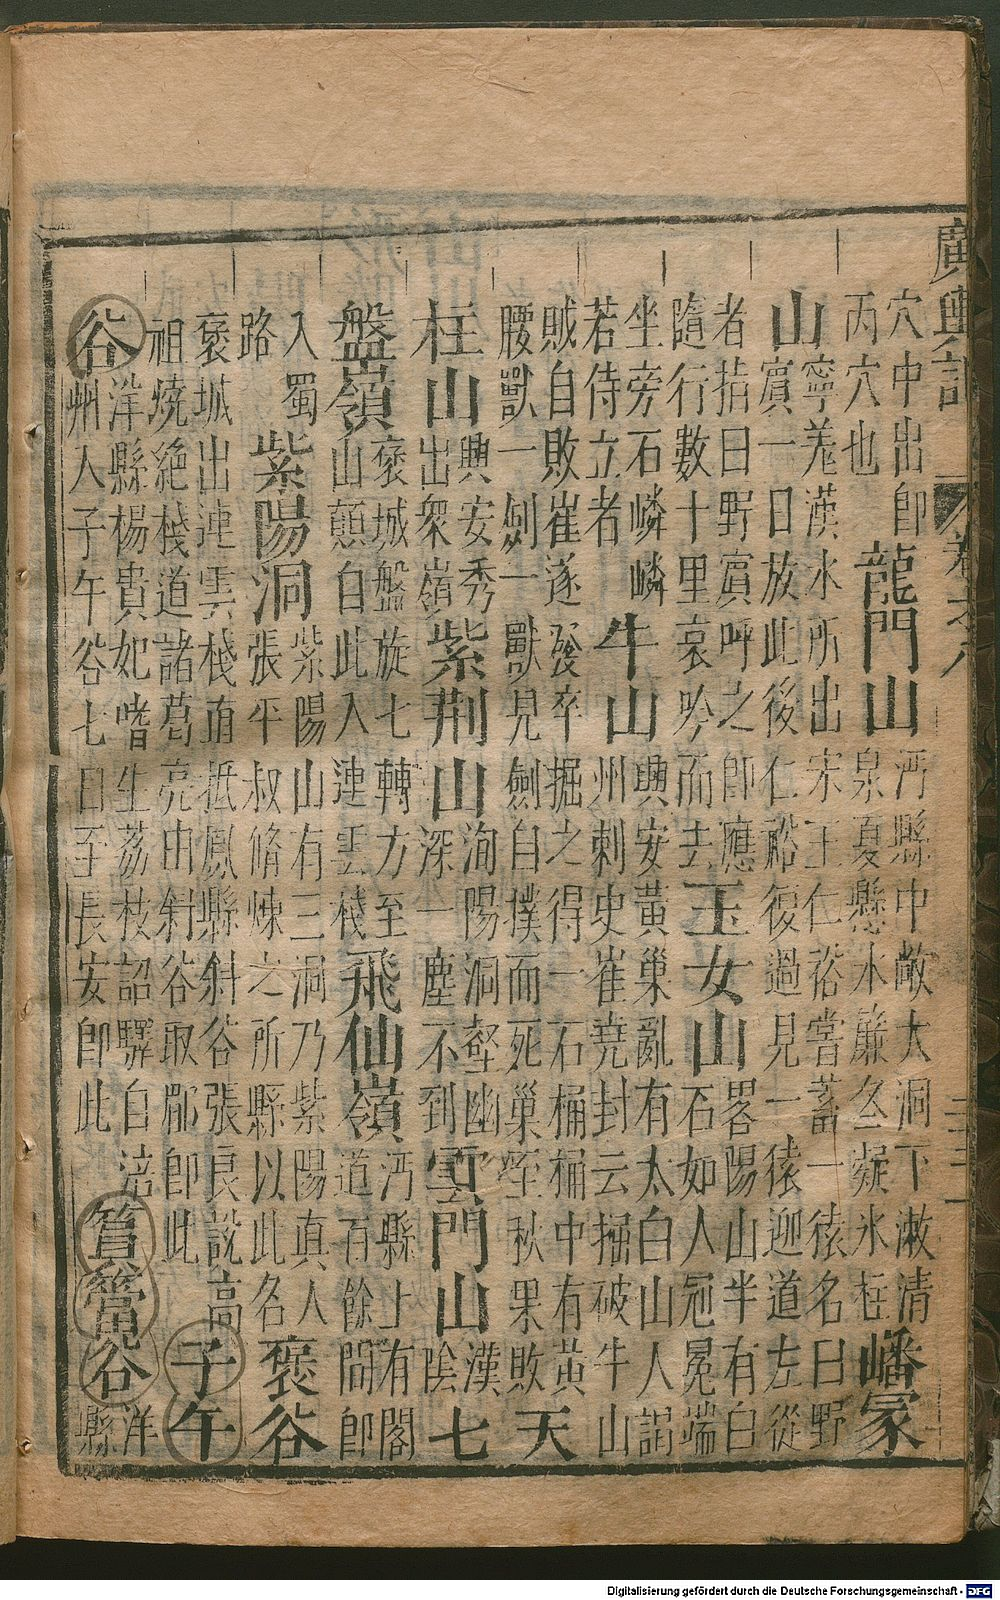 廣輿記 卷之八
穴中出卽
丙穴也
龍門山
沔縣中敞大洞下漱清
泉夏懸水簾冬凝氷柱
嶓冢
山
寧羗漢水所出宋王仁裕嘗蓄一猿名曰野
賔一日放此後仁裕復過見一猿迎道左從
者指曰野賔呼之卽應
隨行數十里哀吟而去
玉女山
畧陽山半有白
石如人冠冕端
坐旁石嶙嶙
若侍立者
牛山
興安黃巢亂有太白山人謁
州刺史崔堯封云掘破牛山
賊自敗崔遂發卒掘之得一石桶桶中有黃
腰獸一劍一獸見劍自撲而死巢至秋果敗
天
柱山
興安秀
出衆嶺
紫荆山
洵陽洞壑幽
深一塵不到
雲門山
漢
陰
七
盤嶺
褒城盤旋七轉方至
山顛自此入連雲棧
飛仙嶺
沔縣上有閣
道百餘間卽
入蜀
路
紫陽洞
紫陽山有三洞乃紫陽真人
張平叔脩煉之所縣以此名
褒谷
褒城出連雲棧直抵鳳縣斜谷張良說高
祖燒絕棧道諸葛亮由斜谷取郿卽此
子午
谷
洋縣楊貴妃嗜生荔枝詔驛自涪
州入子午谷七日至長安卽此
篔簹谷
洋
縣
Digitalisierung gefördert durch die Deutsche Forschungsgemeinschaft - DFG